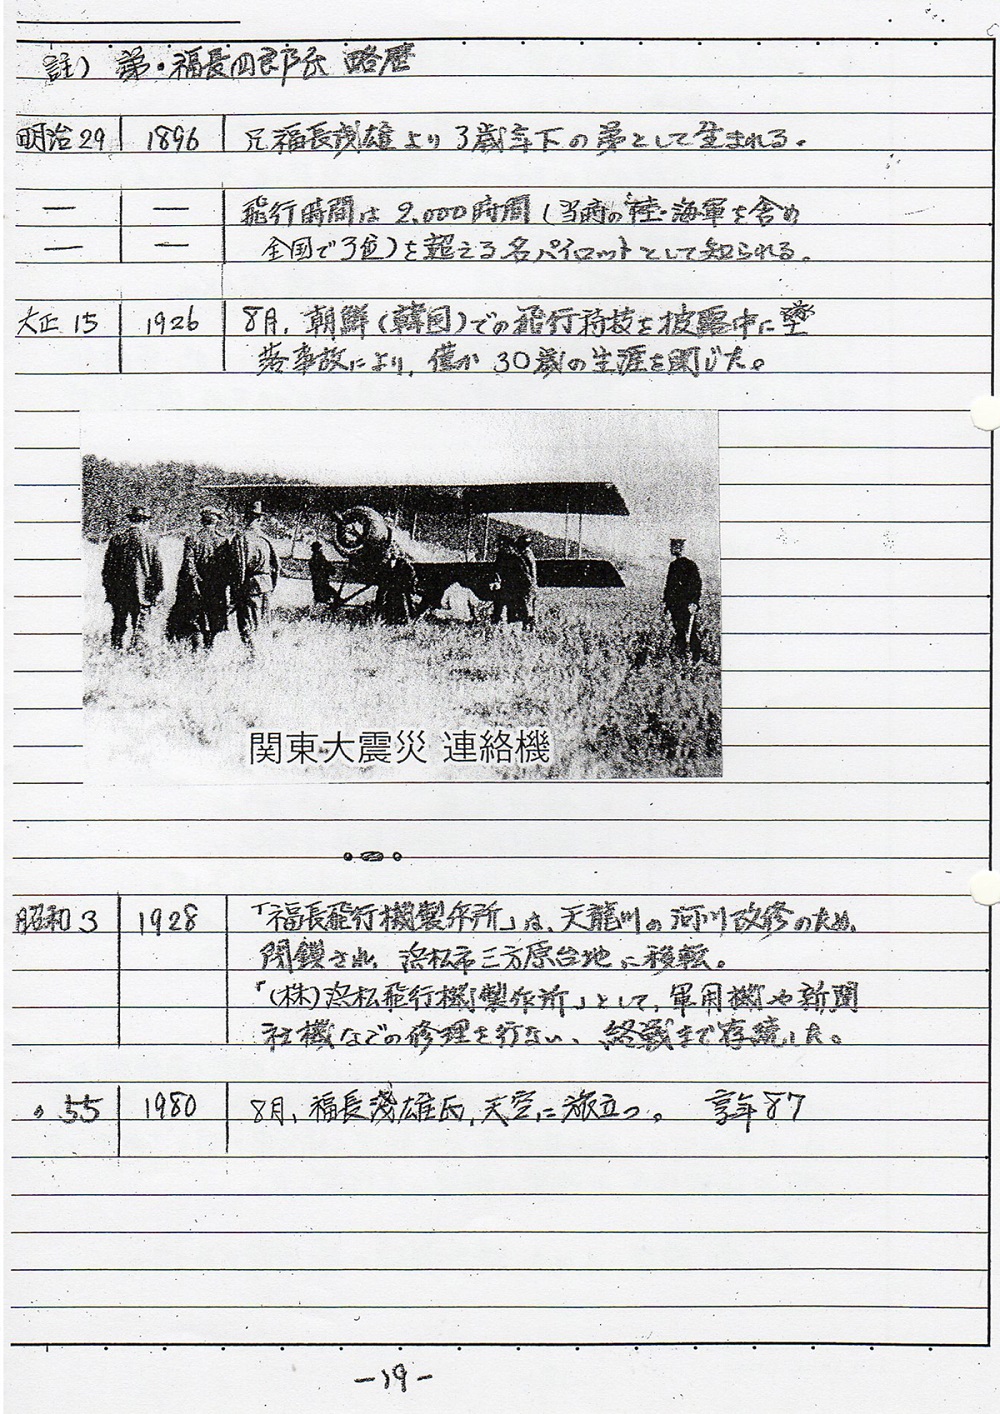 註) 弟・福長四郎氏 略歴
明治29 1896 兄福長浅雄より3歳年下の弟として生まれる。
― ― 飛行時間は2,000時間(当時の陸・海軍を含め
― ― 全国で3位)を超える名パイロットとして知られる。
大正15 1926 8月、朝鮮(韓国)での飛行特技を披露中に墜
落事故により、僅か30歳の生涯を閉じた。
関東大震災 連絡機
昭和3 1928 「福長飛行機製作所」は、天龍川の河川改修のため、
閉鎖され、浜松市三方原台地に移転。
「(株)浜松飛行機製作所」として、軍用機や新聞
社機などの修理を行ない、終戦まで存続した。
〃55 1980 8月、福長浅雄氏、天空に旅立つ。 享年87
-19-